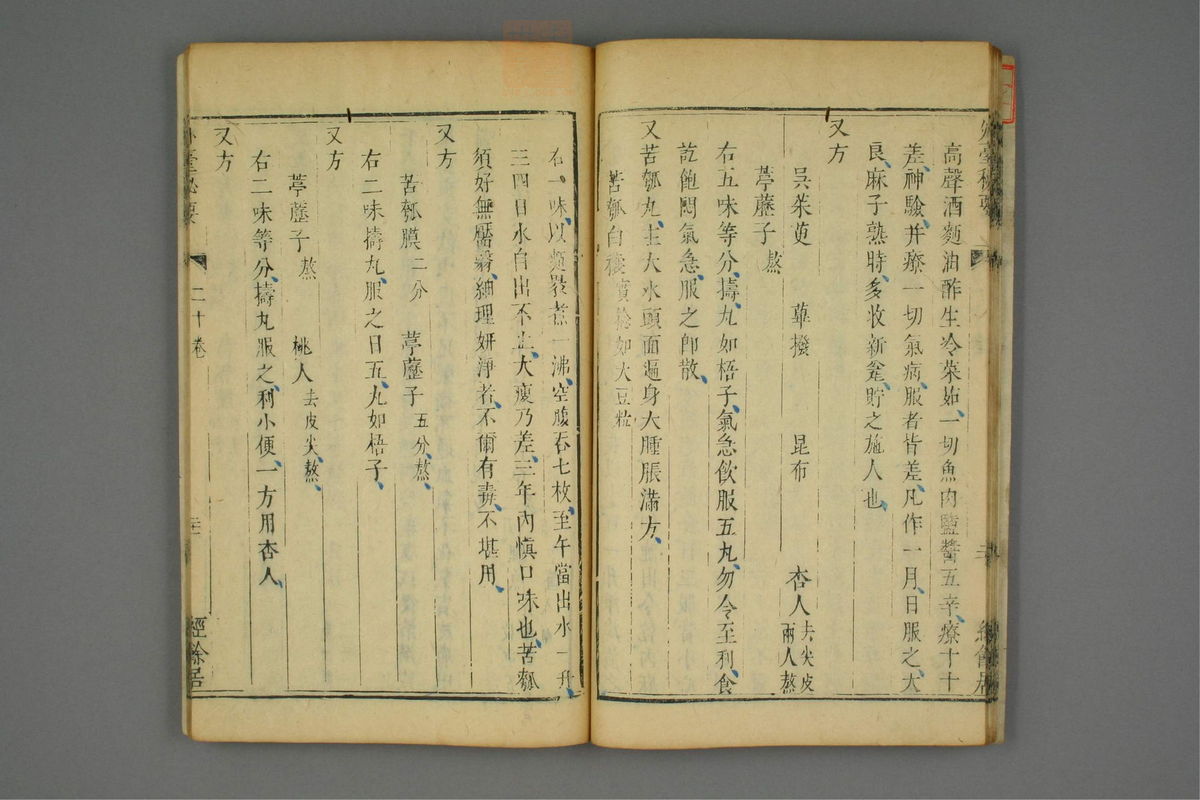 外臺秘要
高聲酒麵油酢生冷菜茹一切魚肉鹽醬五辛療十十
差神驗并療一切氣病服者皆差凡作一月日服之大
良麻子熟時多收新瓮貯之施人也
又方
吳茱萸 蓽撥 昆布 杏人去尖皮兩人熬
葶藶子熬
右五味等分擣丸如梧子氣急飲服五丸勿令至利食
訖飽悶氣急服之即散
又苦瓠丸主大水頭面遍身大腫脹滿方
苦瓠白穰實捻如大豆粒
右一味以麵裹煮一沸空腹吞七枚至午當出水一升
三四日水自出不止大瘦乃差三年內慎口味也苦瓠
須好無靨翳細理妍淨者不爾有毒不堪用
又方
苦瓠膜二分 葶藶子五分熬
右二味擣丸服之日五丸如梧子
又方
葶藶子熬 桃人去皮尖熬
右二味等分擣丸服之利小便一方用杏人
又方
外臺秘要 二十卷 經餘居